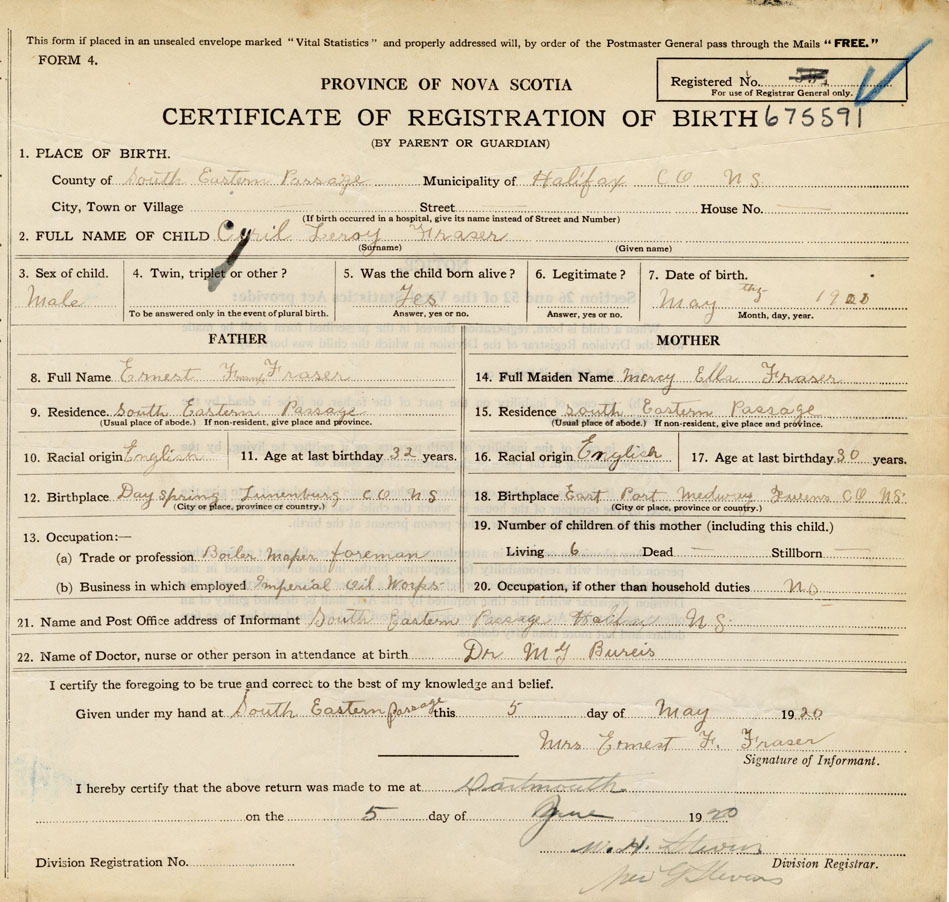 This form if placed in an unsealed envelope marked "Vital Statistics" and properly addressed will, by order of the Postmaster General pass through the Mails "FREE."
FORM 4.
Registered No.
For use of Registrar General only.
PROVINCE OF NOVA SCOTIA
CERTIFICATE OF REGISTRATION OF BIRTH 675591
(BY PARENT OR GUARDIAN)
1. PLACE OF BIRTH.
County of South Eastern Passage Municipality of Halifax CO NS
City, Town or Village Street House No.
(If birth occurred in a hospital, give its name instead of Street and Number)
2. FULL NAME OF CHILD Cyril Leroy Fraser
(Surname) (Given name)
3. Sex of child. 4. Twin, triplet or other? 5. Was the child born alive? 6. Legitimate? 7. Date of birth.
Male Yes May 1920
To be answered only in the event of plural birth. Answer, yes or no. Answer, yes or no. Month, day, year.
FATHER MOTHER
8. Full Name Ernest Fraser 14. Full Maiden Name Mercy Ella Fraser
9. Residence. South Eastern Passage 15. Residence South Eastern Passage
(Usual place of abode.) If non-resident, give place and province. (Usual place of abode.) If non-resident, give place and province.
10. Racial origin English 11. Age at last birthday 32 years. 16. Racial origin English 17. Age at last birthday 30 years.
12. Birthplace Day spring Lunenburg CO NS 18. Birthplace East Port Medway Queens CO NS.
(City or place, province or country.) (City or place, province or country.)
13. Occupation:— 19. Number of children of this mother (including this child.)
(a) Trade or profession Boiler Maker foreman Living 6 Dead Stillborn
(b) Business in which employed Imperial Oil Works 20. Occupation, if other than household duties No
21. Name and Post Office address of Informant South Eastern Passage NS.
22. Name of Doctor, nurse or other person in attendance at birth Dr M G
I certify the foregoing to be true and correct to the best of my knowledge and belief.
Given under my hand at South Eastern passage this 5 day of May 1920
Mrs Ernest F. Fraser
Signature of Informant.
I hereby certify that the above return was made to me at Dartmouth
on the 5 day of June 1920
Division Registration No. Division Registrar.